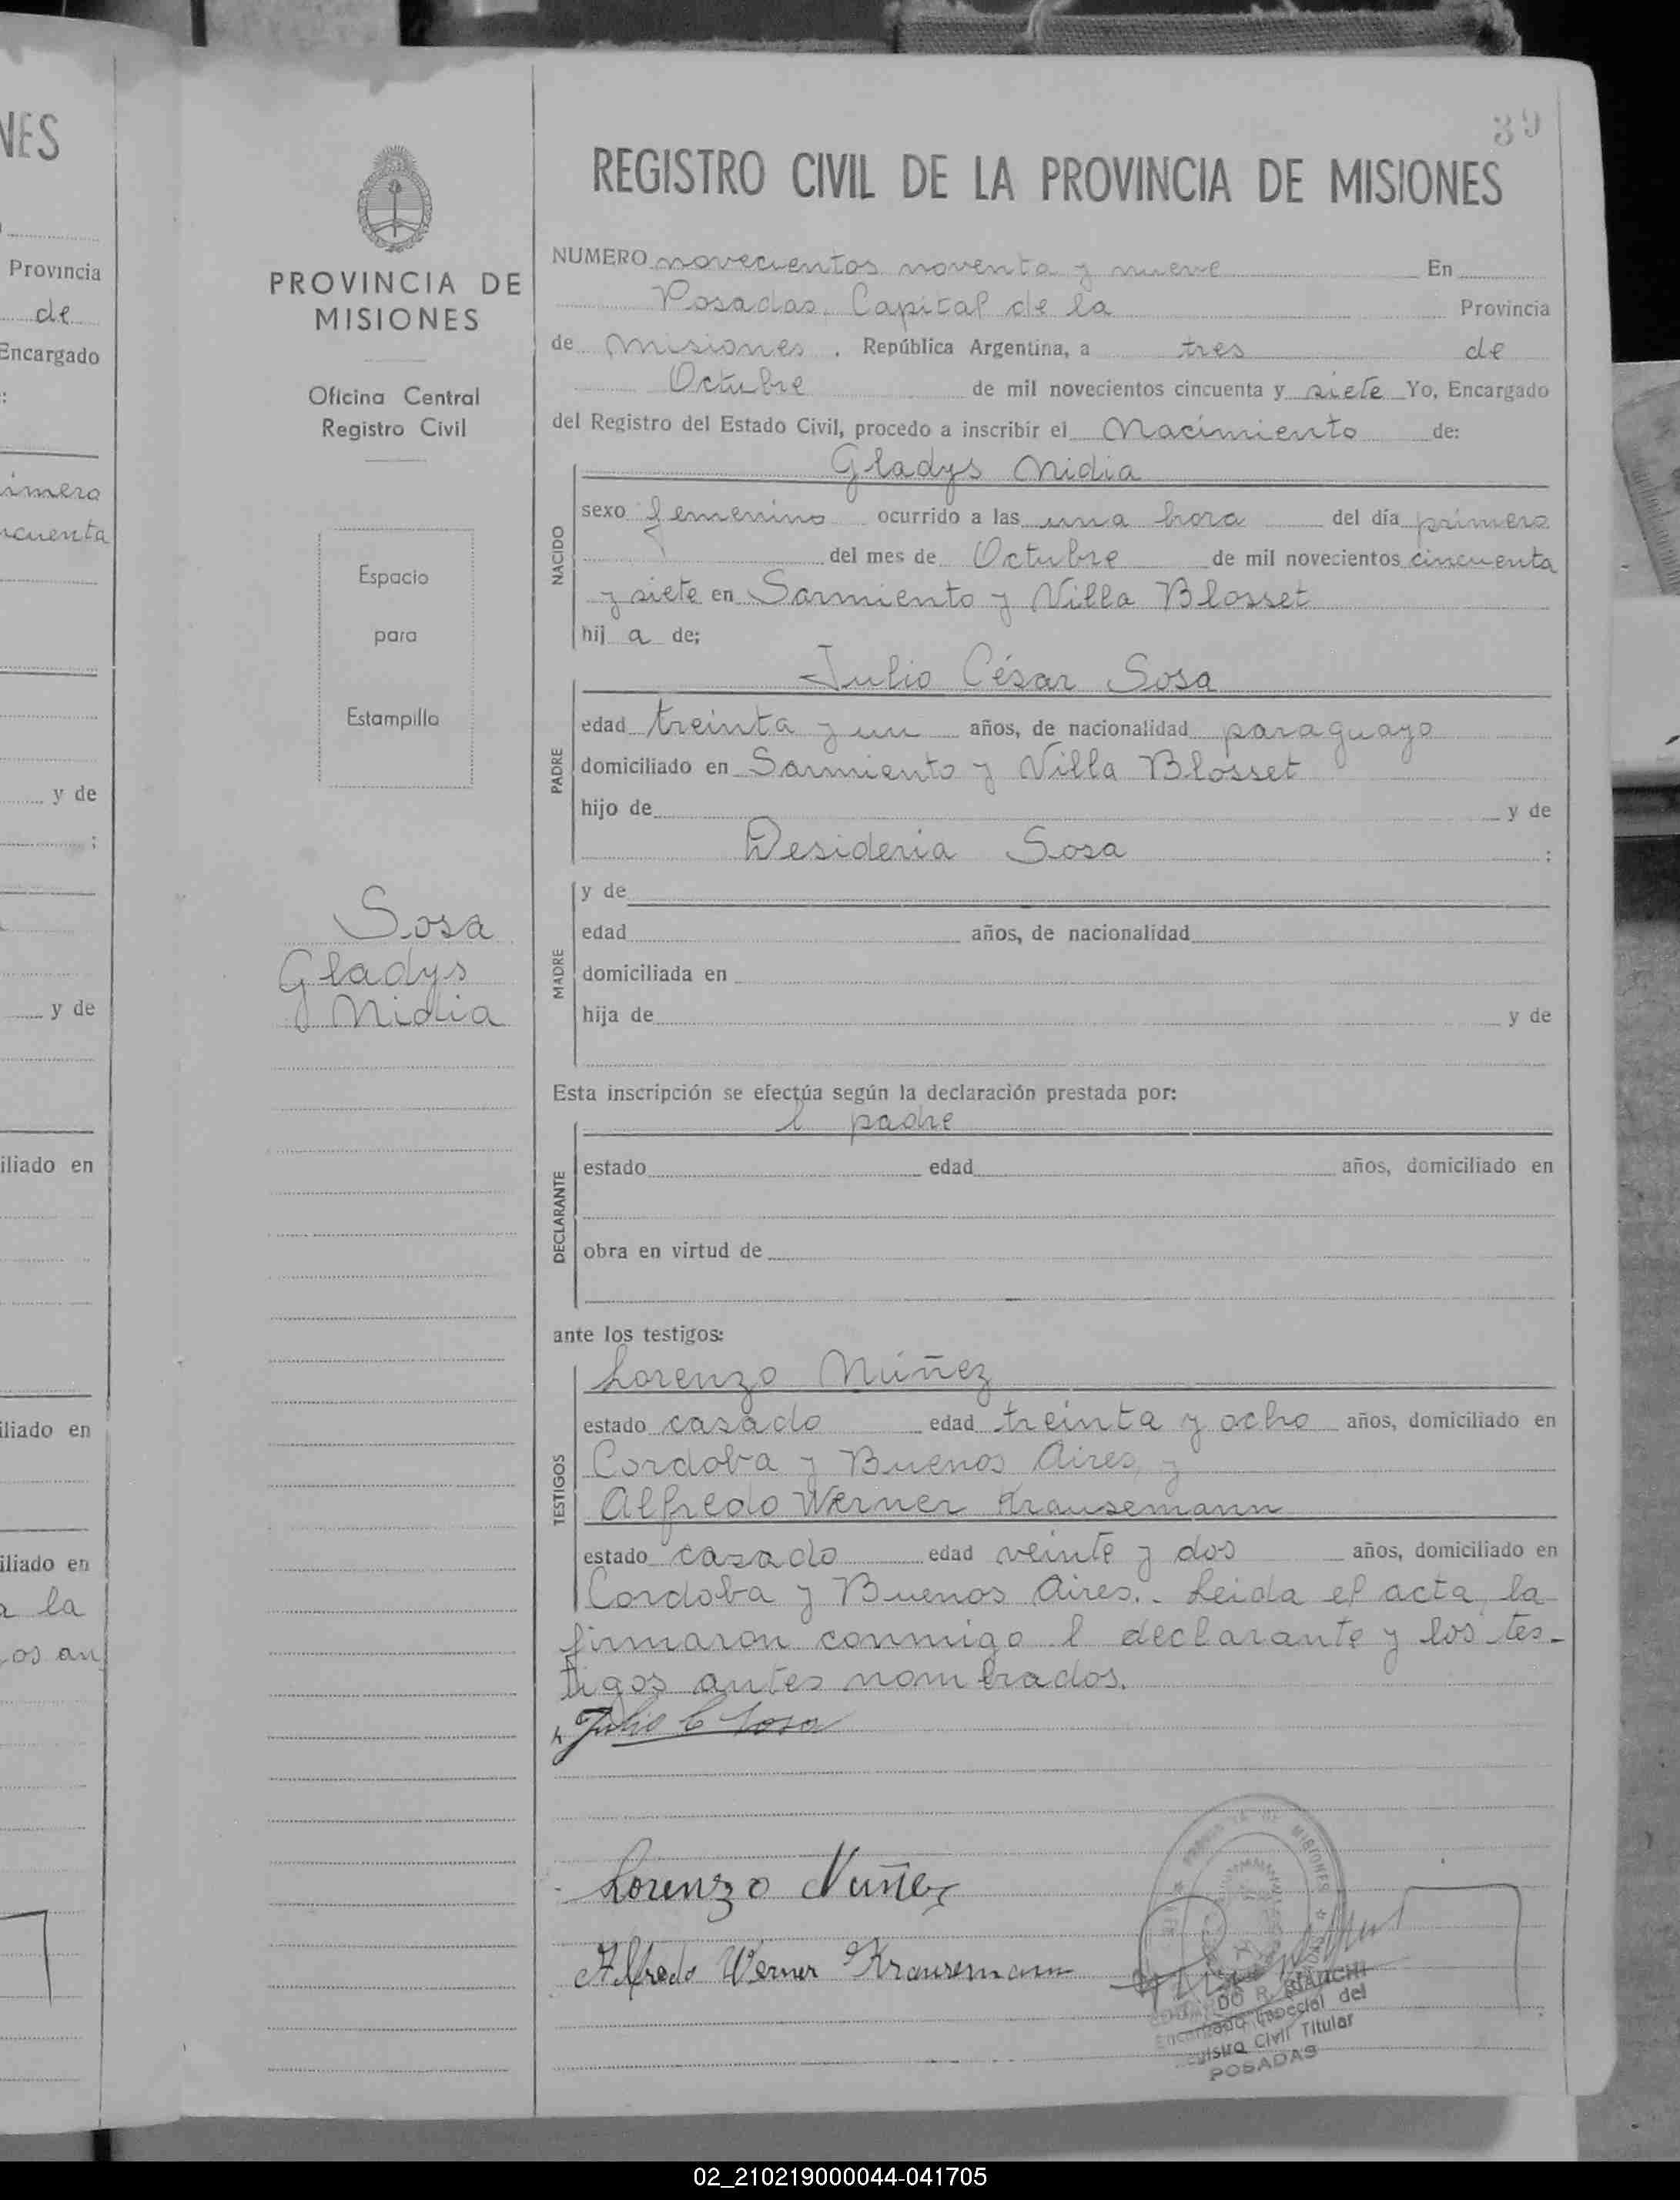 NES
Provincia
de
Encargado
:
imero
ncuenta
y de
;
y de
iliado en
iliado en
iliado en
a la
os an
PROVINCIA DE
MISIONES
Oficina Central
Registro Civil
Espacio
para
Estampilla
Sosa
Gladys
Nidia
39
REGISTRO CIVIL DE LA PROVINCIA DE MISIONES
NUMERO novecientos noventa y nueve En
Posadas, Capital de la Provincia
de Misiones . República Argentina, a tres de
Octubre de mil novecientos cincuenta y siete Yo, Encargado
del Registro del Estado Civil, procedo a inscribir el Nacimiento de:
Gladys Nidia
NACIDO
sexo femenino ocurrido a las una hora del día primero
del mes de Octubre de mil novecientos cincuenta
y siete en Sarmiento y Villa Blosset
hij a de;
Julio César Sosa
PADRE
edad treinta y un años, de nacionalidad paraguayo
domiciliado en Sarmiento y Villa Blosset
hijo de y de
Desideria Sosa ;
MADRE
y de
edad años, de nacionalidad
domiciliada en
hija de y de
Esta inscripción se efectúa según la declaración prestada por:
l padre
DECLARANTE
estado edad años, domiciliado en
obra en virtud de
ante los testigos:
TESTIGOS
Lorenzo Núñez
estado casado edad treinta y ocho años, domiciliado en
Cordoba y Buenos Aires, y
Alfredo Werner Krausemann
estado casado edad veinte y dos años, domiciliado en
Cordoba y Buenos Aires.- Leida el acta, la
firmaron conmigo l declarante y los tes-
tigos antes nombrados.
Julio C Sosa
Lorenzo Nuñez
Alfredo Werner Krausemann
MISIONES
DO R. BIANCHI
Encargado Especial del
Registro Civil Titular
POSADAS
02_210219000044-041705